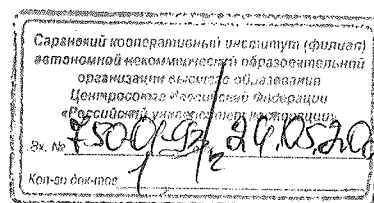 Саранский кооперативный институт (филиал)
автономной некоммерческой образовательной
организации высшего образования
Центросоюза Российской Федерации
«Российский университет кооперации»
Вх. №
Кол-во док-тов